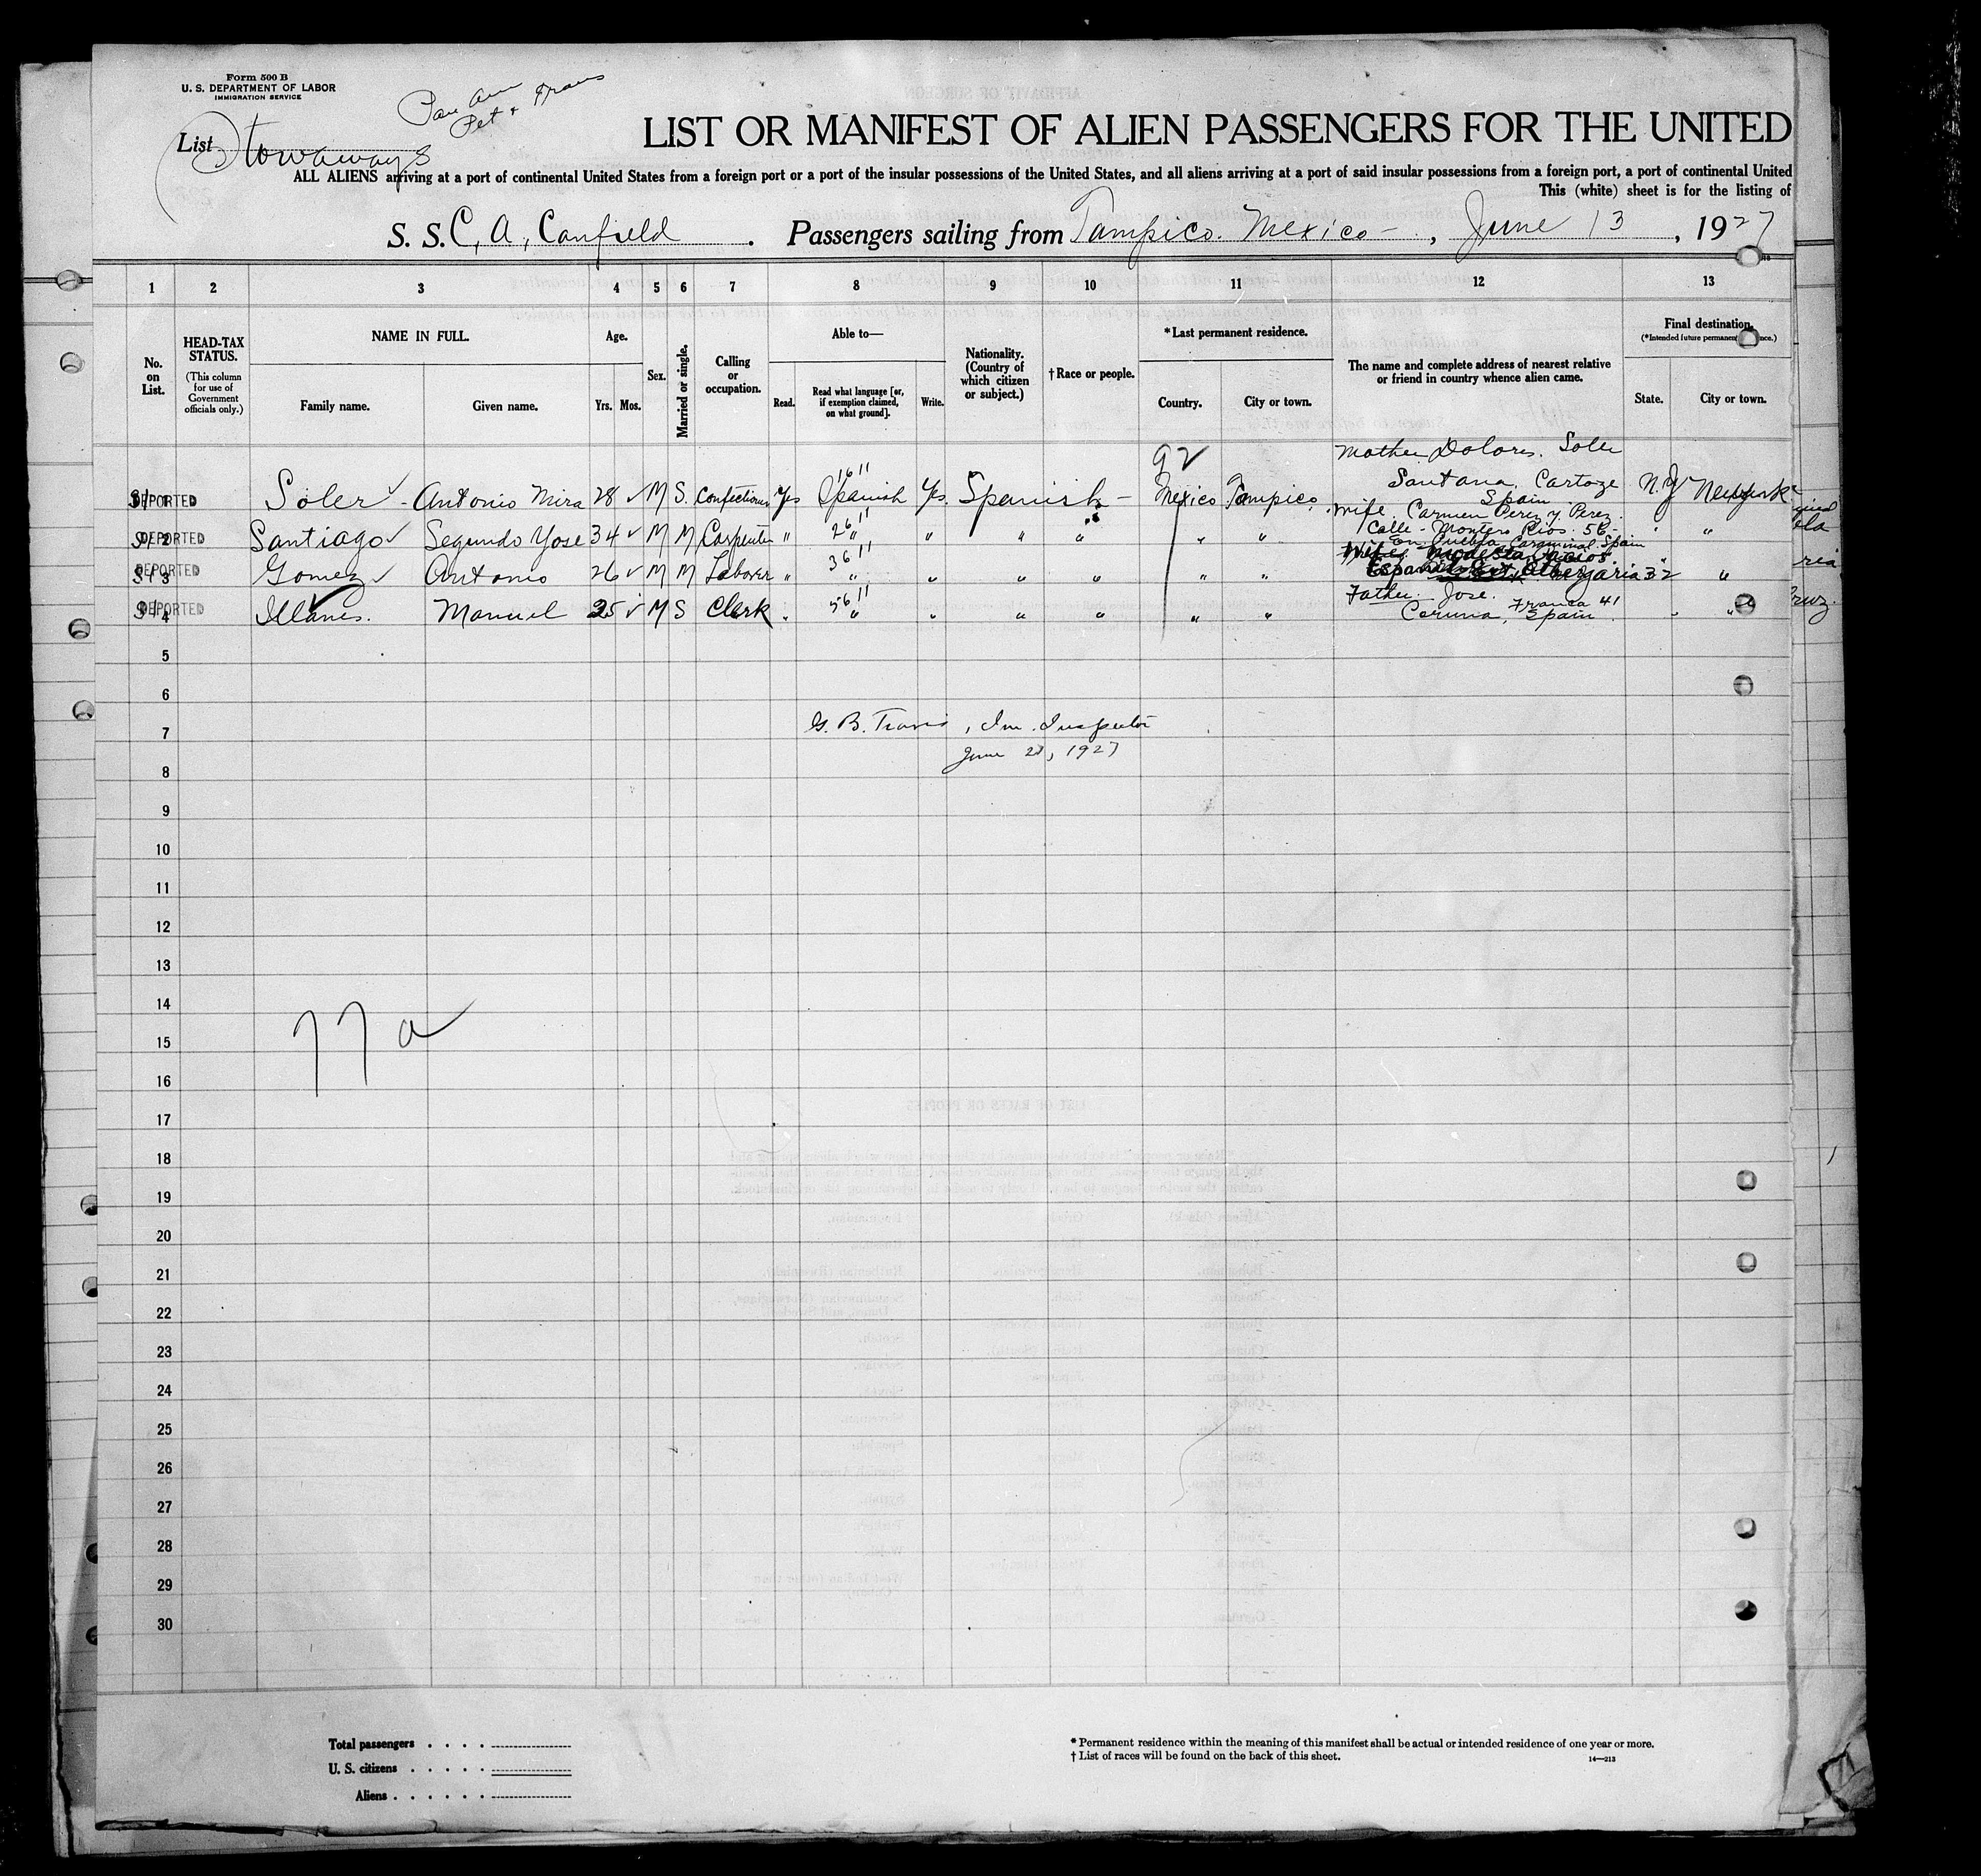 Form 500 B
U. S. DEPARTMENT OF LABOR
IMMIGRATION SERVICE
Pan Am
Pet & Trans
List Stowaways
LIST OR MANIFEST OF ALIEN PASSENGERS FOR THE UNITED
ALL ALIENS arriving at a port of continental United States from a foreign port or a port of the insular possessions of the United States, and all aliens arriving at a port of said insular possessions from a foreign port, a port of continental United
This (white) sheet is for the listing of
S. S. C. A. Canfield . Passengers sailing from Tampico. Mexico - , June 13 , 1927
1 2 3 4 5 6 7 8 9 10 11 12 13
No. on List.
HEAD-TAX STATUS.
(This column for use of Government officials only.)
NAME IN FULL.
Family name. Given name.
Age.
Yrs. Mos.
Sex.
Married or single.
Calling or occupation.
Able to—
Read. Read what language [or, if exemption claimed, on what ground]. Write.
Nationality. (Country of which citizen or subject.)
†Race or people.
*Last permanent residence.
Country. City or town.
The name and complete address of nearest relative or friend in country whence alien came.
Final destination.
(*Intended future permanent
State. City or town.
92
Mother Dolores. Soler
Santana. Cartage
Spain
DEPORTED 1 Soler - Antonio Mira 28 M S. Confectioner Yes Spanish Yes. Spanish - Mexico Tampico. N.Y New York
1611
wife. Carmen Perez y Perez
Calle - Montero Rios. 56-
En Puebla Caraminal Spain
DEPORTED 2 Santiago Segundo Yose 34 M M Carpenter " " " " " " " "
2611
DEPORTED 3 Gomez Antonio 26 M M Laborer " " " " " " " "
3611
Wife. Modesta
Albergaria 32
DEPORTED 4 Illanes. Manuel 25 M S Clerk " " " " " " " "
5611
Father. Jose.
Franca 41
Coruna, Spain
5
6
7
G. B. Travis, Im. Inspector
June 21, 1927
8
9
10
11
12
13
14
77a
15
16
17
18
19
20
21
22
23
24
25
26
27
28
29
30
Total passengers
U. S. citizens
Aliens
* Permanent residence within the meaning of this manifest shall be actual or intended residence of one year or more.
† List of races will be found on the back of this sheet.
14—213